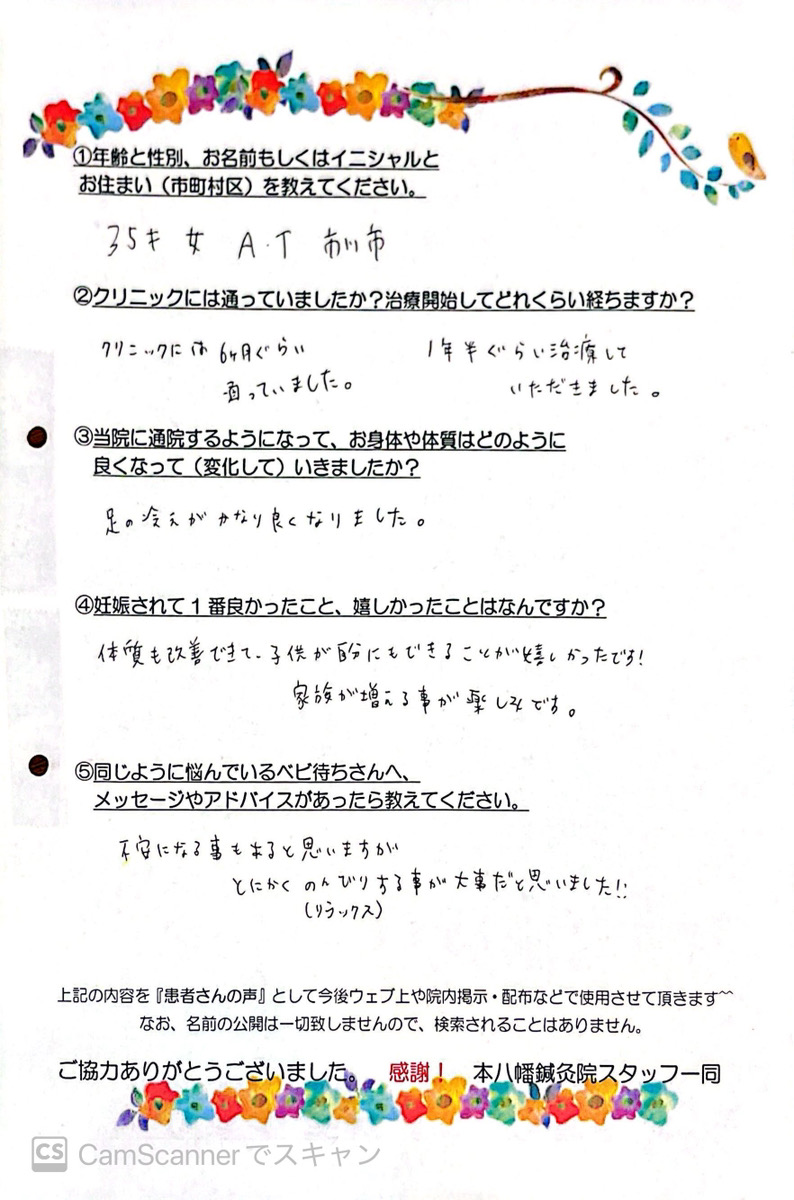 ①年齢と性別、お名前もしくはイニシャルと
お住まい（市町村区）を教えてください。
35才 女 A.T 市川市
②クリニックには通っていましたか？治療開始してどれくらい経ちますか？
クリニックには 6ヶ月ぐらい
通っていました。
1年半ぐらい治療して
いただきました。
③当院に通院するようになって、お身体や体質はどのように
良くなって（変化して）いきましたか？
足の冷えがかなり良くなりました。
④妊娠されて1番良かったこと、嬉しかったことはなんですか？
体質も改善できて、子供が自分にもできることが嬉しかったです!
家族が増える事が楽しみです。
⑤同じように悩んでいるベビ待ちさんへ、
メッセージやアドバイスがあったら教えてください。
不安になる事もあると思いますが
とにかく のんびりする事が大事だと思いました!!
(リラックス)
上記の内容を『患者さんの声』として今後ウェブ上や院内掲示・配布などで使用させて頂きます^^
なお、名前の公開は一切致しませんので、検索されることはありません。
ご協力ありがとうございました。 感謝！ 本八幡鍼灸院スタッフ一同
CS CamScannerでスキャン